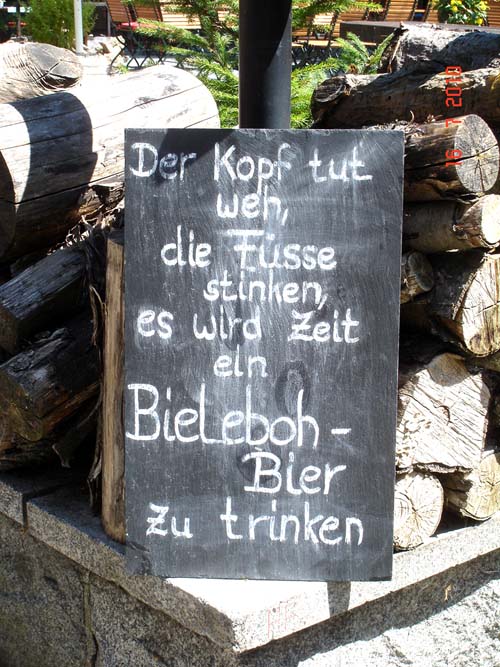 Der Kopf tut
weh,
die Füsse
stinken,
es wird Zeit
ein
Bieleboh-
Bier
zu trinken